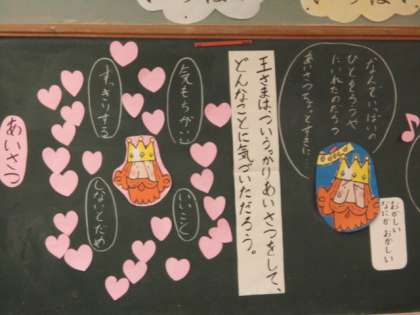 なんでいっぱいの
ひとをうつや
にいれたのだろう
あいさつちょっとすきに…
おかしい
なにか おかしい
王さまはついうっかりあいさつをして、
どんなことに気づいただろう。
気もちがいい
いいこと
すっきりする
しないとだめ
あいさつ